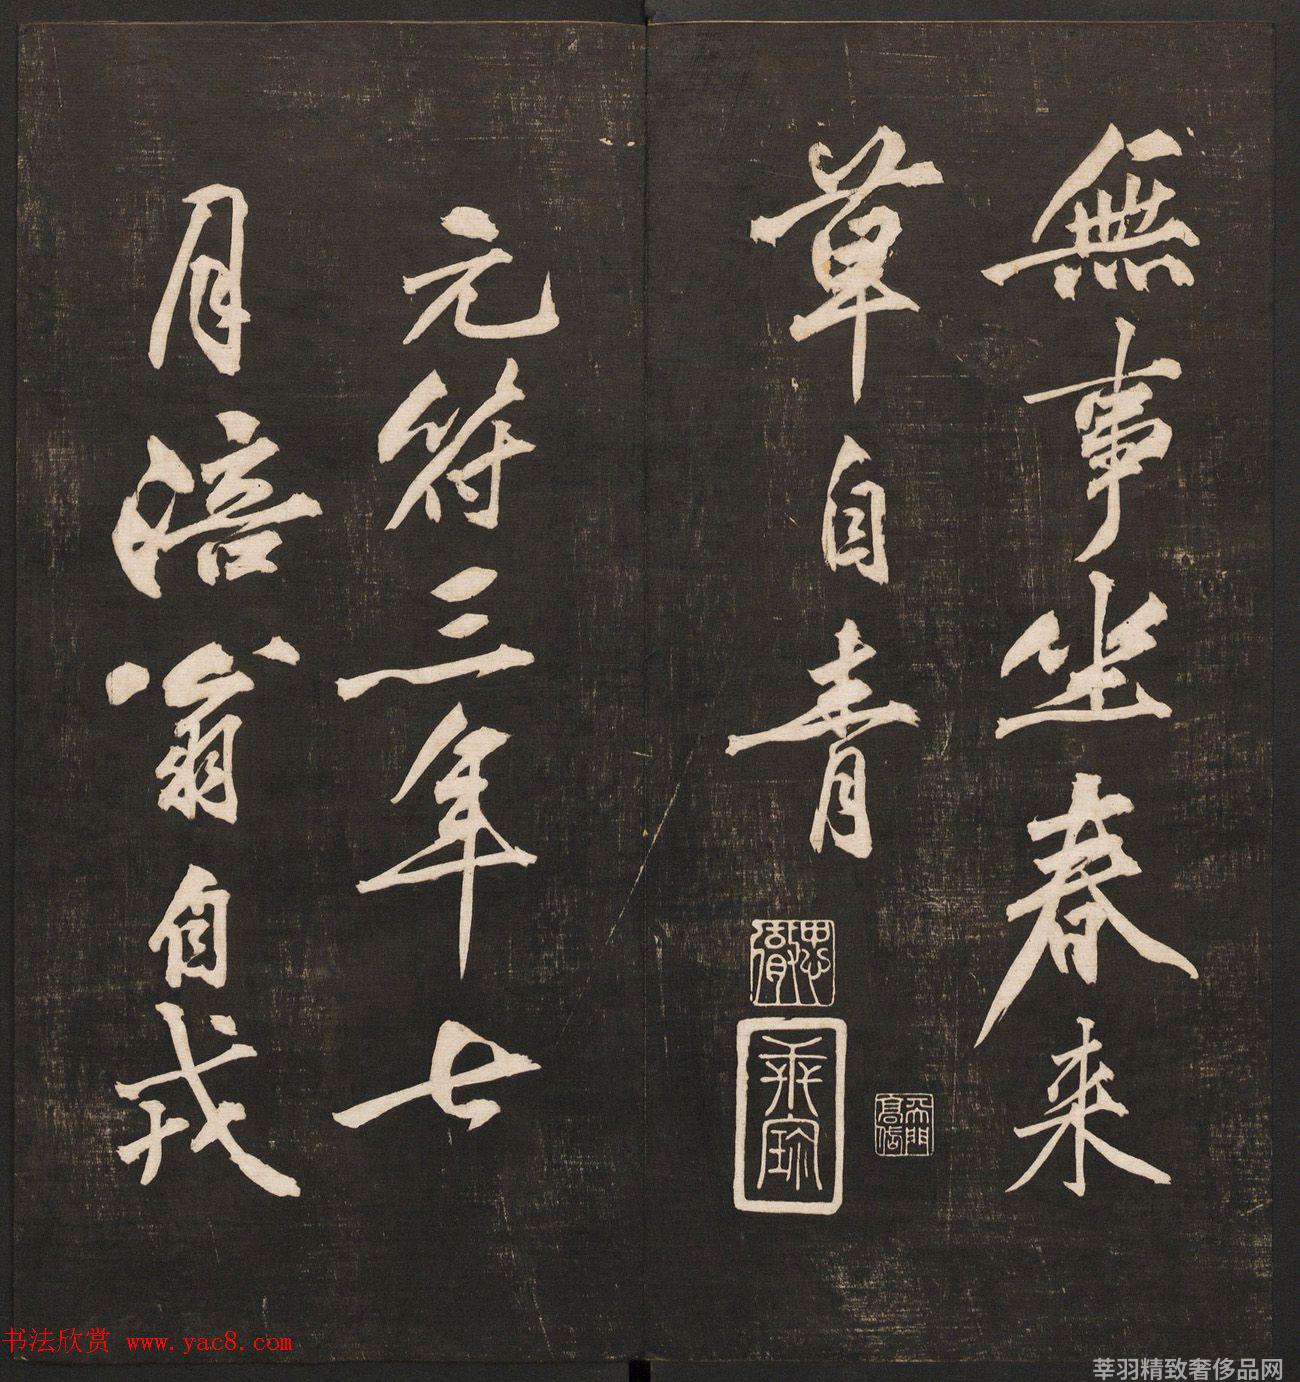 無事坐春来
草自青
元符三年七
月涪翁自戎
书法欣赏 www.yac8.com
莘羽精致奢侈品网